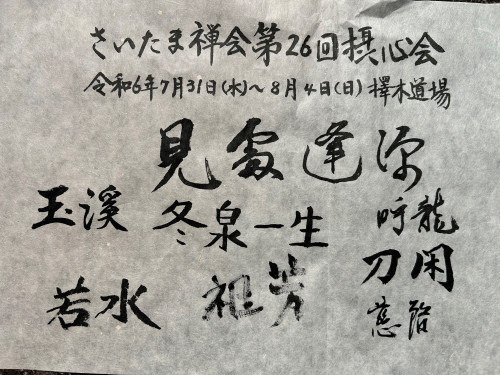 さいたま禅会第26回摂心会
令和6年7月31日(水)～8月4日(日)擇木道場
見處逢源
玉溪 冬泉一生 呼龍
刀閑
若水 祖芳 慈